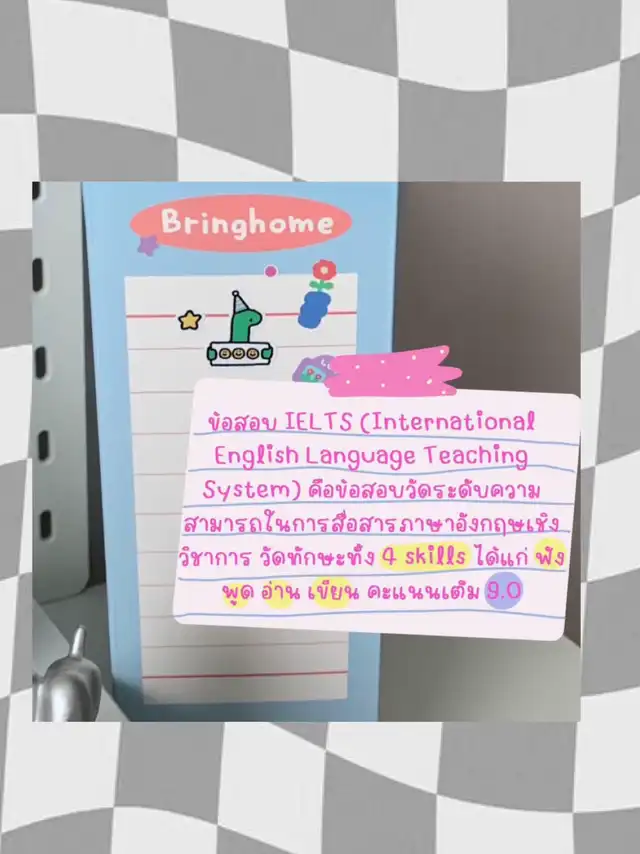 Bringhome
ข้อสอบ IELTS (International
English Language Teaching
System) คือข้อสอบวัดระดับความ
สามารถในการสื่อสารภาษาอังกฤษเชิง
วิชาการ วัดทักษะทั้ง 4 skills ได้แก่ ฟัง
พูด อ่าน เขียน คะแนนเต็ม 9.0